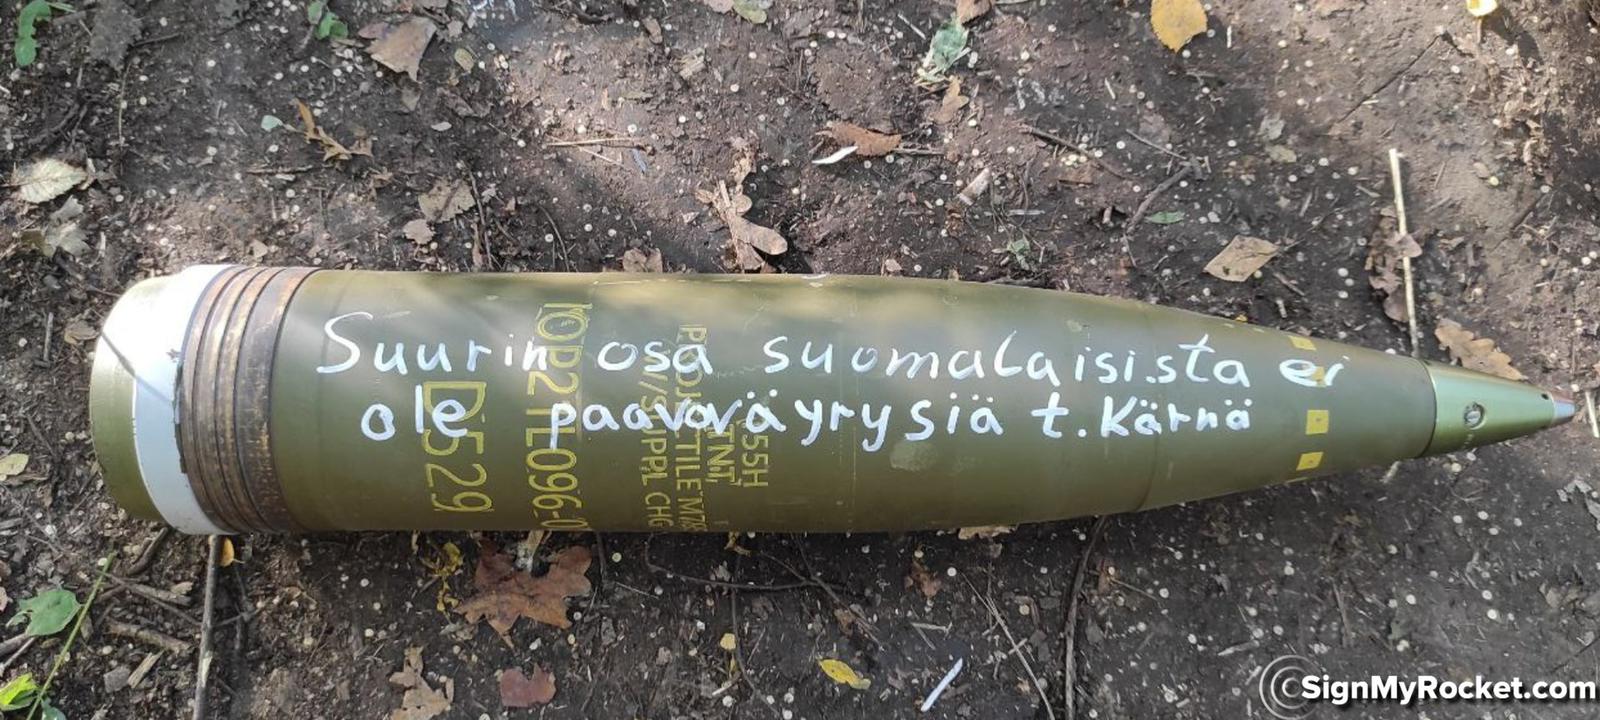 Suurin osa suomalaisista ei
ole paavoväyrysiä t. Kärnä
155H
TNT,
PROJECTILE M795
W/SUPPL CHG
IOP21L096-0
D529
©SignMyRocket.com